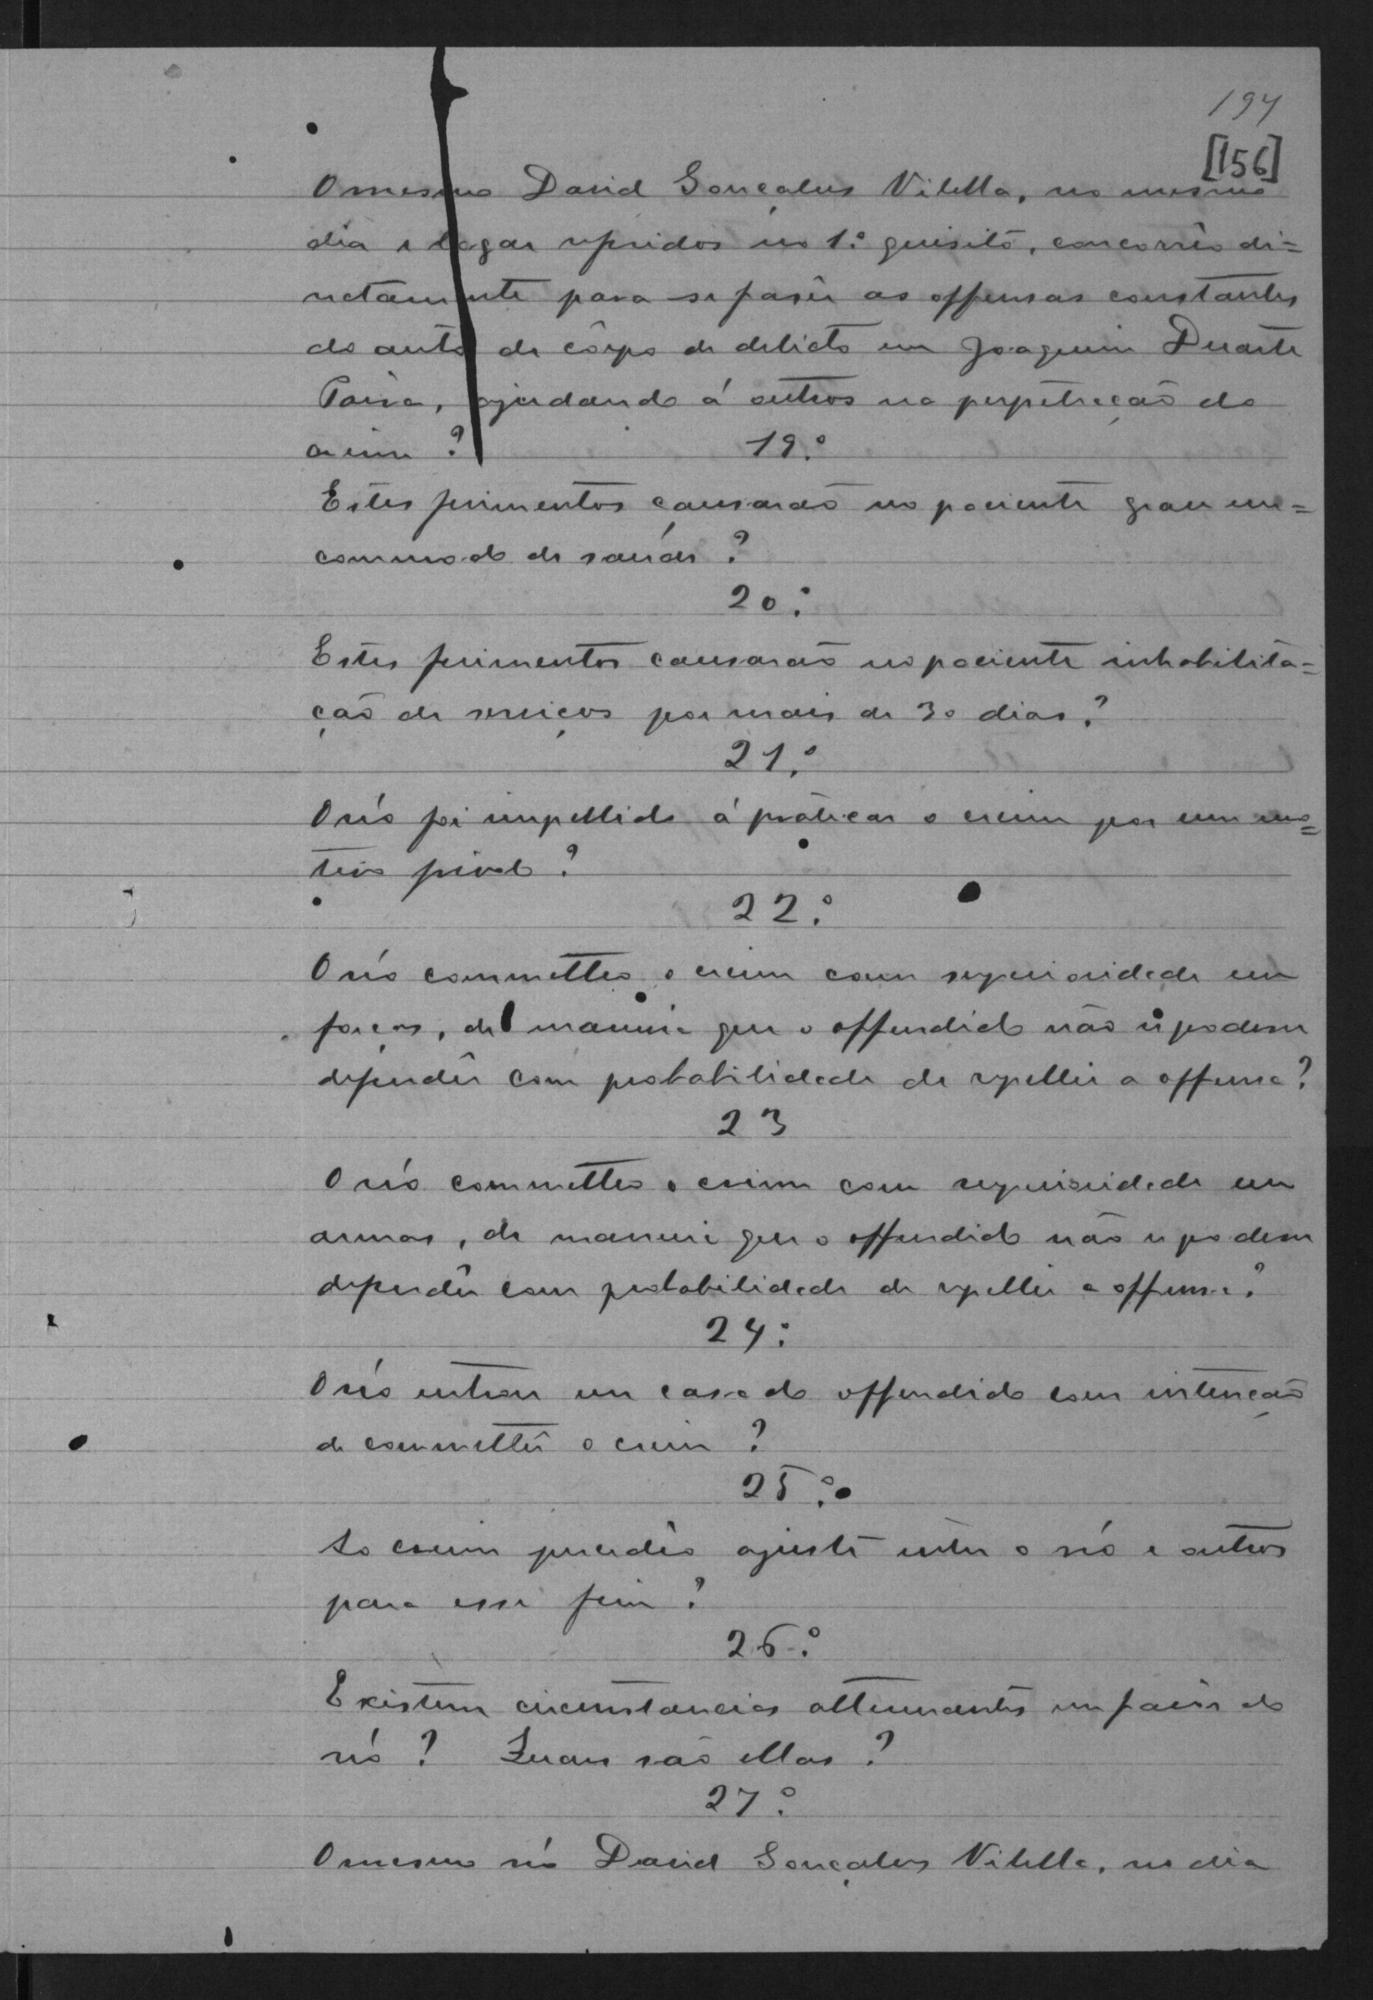 197
[156]
O mesmo David Gonçalves Vilella, no mesmo
dia e logar referidos no 1.º quisito, concorrêo di=
rectamente para se fasêr as offensas constantes
do auto de côrpo de delicto em Joaquim Duarte
Paiva, ajudando á outros na perpetração do
crime ?
19.º
Estes ferimentos causarão no paciente grave in=
commodo de saúde ?
20.º
Estes ferimentos causarão no paciente inhabilita=
ção de serviços por mais de 30 dias ?
21.º
O réo foi impellido á praticar o crime por um mo=
tivo frivolo ?
22.º
O réo commetteo o crime com superioridade em
forças, de maneira que o offendido não se podesse
defendêr com probabilidade de repellir a offensa ?
23
O réo commetteo o crime com superioridade em
armas, de maneira que o offendido não se podesse
defendêr com probabilidade de repellir a offensa ?
24.º
O réo entrou em casa do offendido com intenção
de commettêr o crime ?
25.º
Ao crime precedêo ajuste entre o réo e outros
para esse fim ?
26.º
Existem circumstancias attenuantes em favôr do
réo ? Quaes são ellas ?
27.º
O mesmo réo David Gonçalves Vilella, no dia